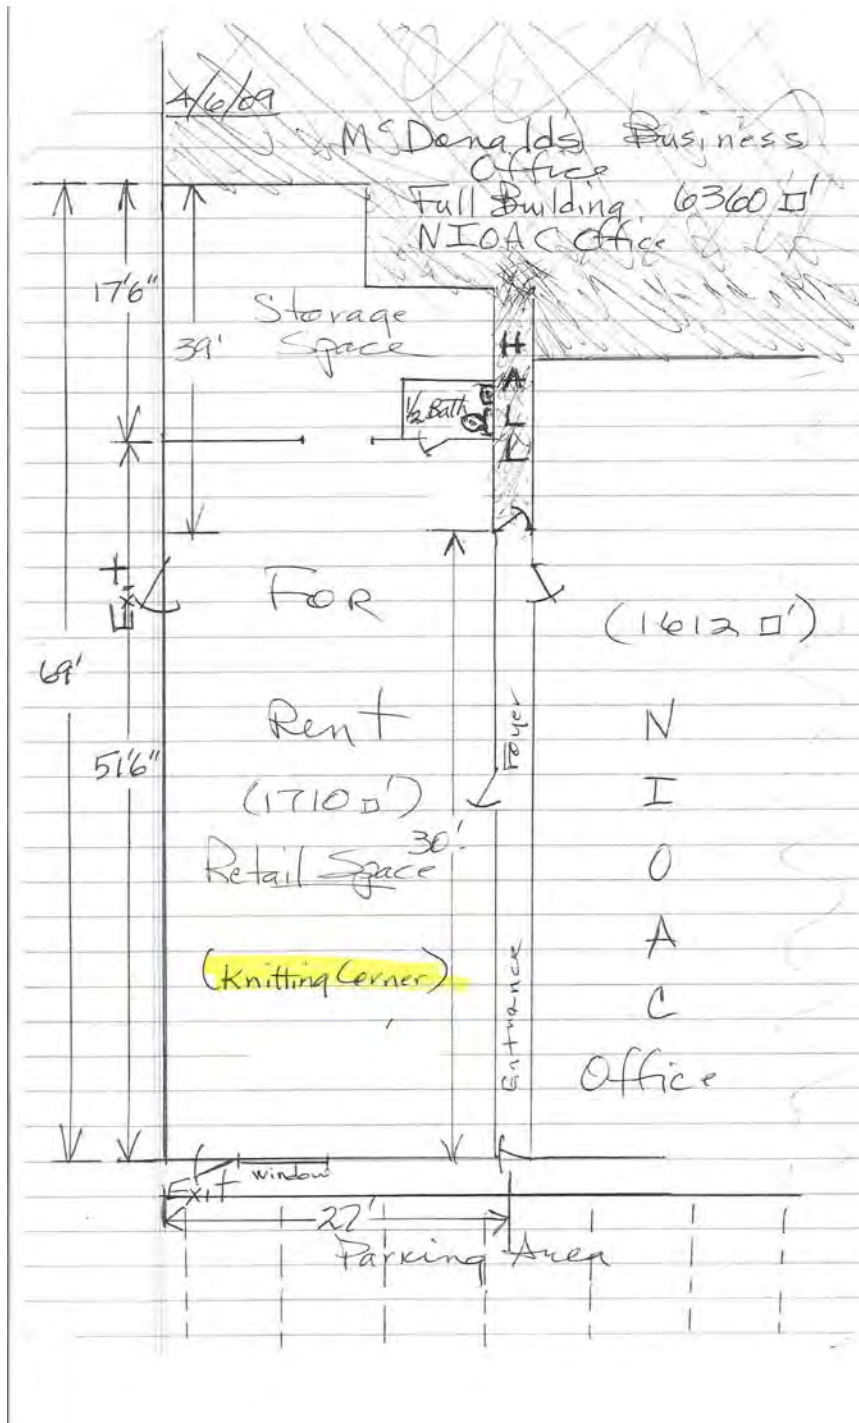 4/6/09
McDonalds Business
Office
Full Building 6360 □'
NIOAC Office
17'6"
39'
Storage
Space
HALL
1/2 Bath
Exit
FOR
(1612 □')
69'
51'6"
Rent
Foyer
(1710 □')
30'
Retail Space
(Knitting Corner)
Entrance
N
I
O
A
C
Office
Exit
window
22'
Parking Area